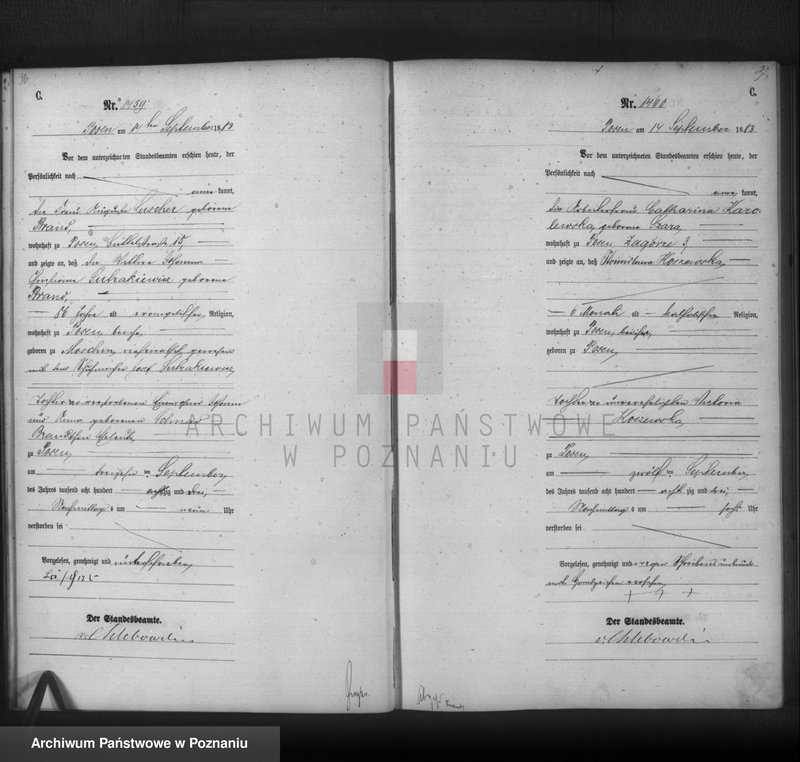 36
C.
Nr. 1459
Posen am 14ten September 1883
Vor dem unterzeichneten Standesbeamten erschien heute, der
Persönlichkeit nach
kannt,
die Frau Auguste Luscher geborene
Brand,
wohnhaft zu Posen, 15,
und zeigte an, daß die Wittwe Johanna
geborene
Brand,
86 Jahre alt evangelischer Religion,
wohnhaft zu Posen
geboren zu Moschin, gewesen
mit dem Schuhmacher
Tochter der verstorbenen Johann
und Anna geborenen
Brand'schen Eheleute
zu Posen,
am dreizehn ten September,
des Jahres tausend acht hundert achtzig und drei,
Nachmittags um neun Uhr
verstorben sei
Vorgelesen, genehmigt und unterschrieben,
Der Standesbeamte.
v. Chlebowski
37
C.
Nr. 1460
Posen am 14 September 1883
Vor dem unterzeichneten Standesbeamten erschien heute, der
Persönlichkeit nach
kannt,
die Arbeiterfrau Catharina Karo-
lewska, geborene Szara,
wohnhaft zu Posen Zagórze 3,
und zeigte an, daß Stanislawa Koszewska,
6 Monate alt katholischer Religion,
wohnhaft zu Posen, bei ihr,
geboren zu Posen,
Tochter der unverehelichten Victoria
Koszewska,
zu Posen,
am zwölf ten September,
des Jahres tausend acht hundert achtzig und drei,
Nachmittags um sechs Uhr
verstorben sei
Vorgelesen, genehmigt und wegen Schreibensunkunde
mit Handzeichen versehen,
+ + +
Der Standesbeamte.
v. Chlebowski
ARCHIWUM PAŃSTWOWE
W POZNANIU
Archiwum Państwowe w Poznaniu